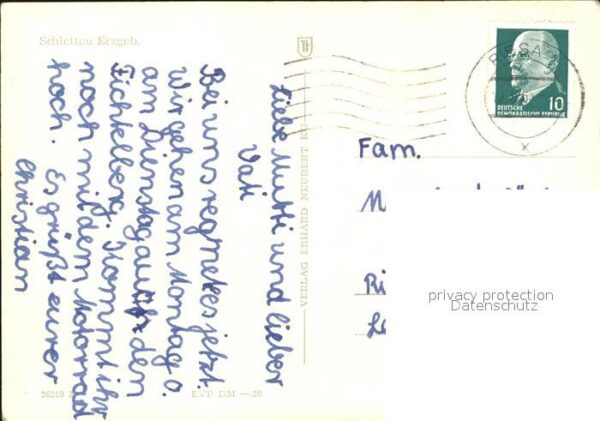 Schlettau Erzgeb.
Liebe Mutti und lieber
Vati
Bei uns regnet es jetzt.
Wir gehen am Montag o.
am Dienstag auf den
Fichtelberg. Kommt ihr
noch mit dem Motorrad
hoch. Es grüßt eurer
Christian
VERLAG ERHARD NEUBERT
26219
EVP DM --,20
10
DEUTSCHE
DEMOKRATISCHE REPUBLIK
Fam.
privacy protection
Datenschutz